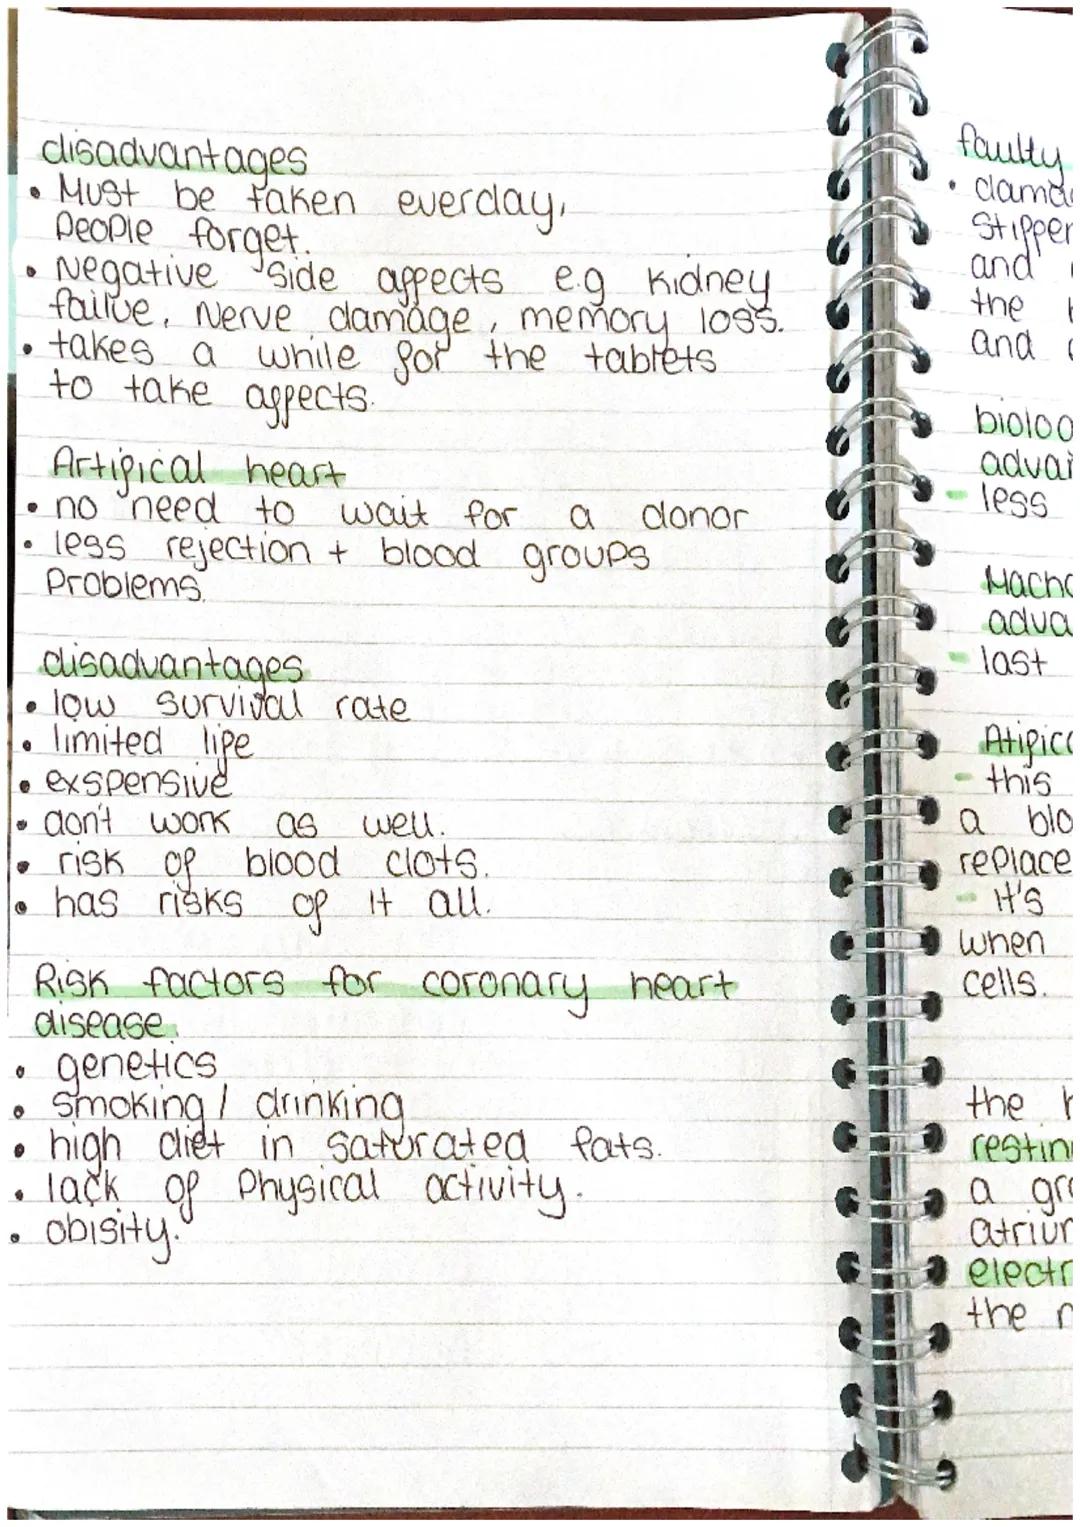 disadvantages
• Must be taken everday,
People forget.
• Negative side affects e.g kidney
failure, Nerve damage, memory loss.
• takes a while for the tablets
to take affects.
Artifical heart
• no need to wait for a donor
• less rejection + blood groups
Problems.
disadvantages
• low survival rate
• limited life
• exspensive
• don't work as well.
• risk of blood clots.
• has risks of it all.
Risk factors for coronary heart
disease.
• genetics
• smoking / drinking
• high diet in saturated fats.
• lack of Physical activity.
• obisity.
faulty
•
and
the
and
- less
- last
- this
a
replace
- it's
when
cells.
the
a
the